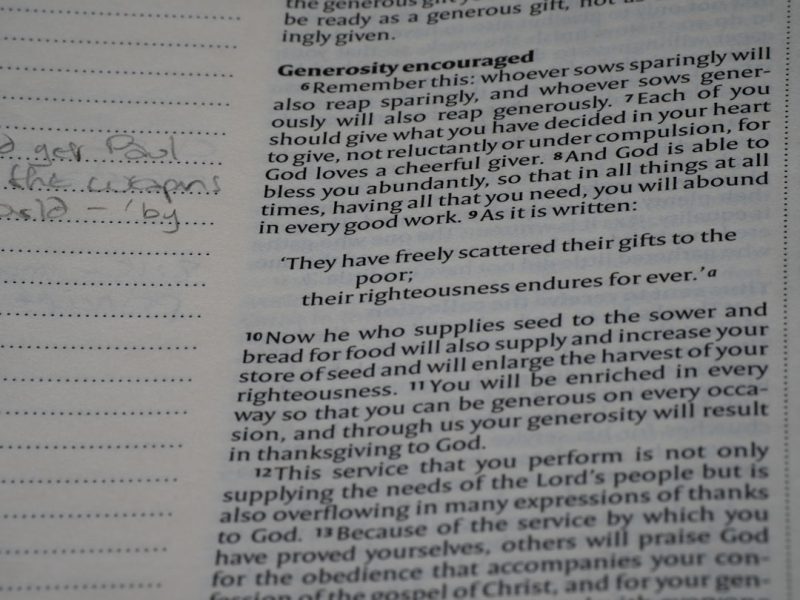 the generous gift
be ready as a generous gift, not as
ingly given.
Generosity encouraged
6 Remember this: whoever sows sparingly will
also reap sparingly, and whoever sows gener-
ously will also reap generously. 7 Each of you
should give what you have decided in your heart
to give, not reluctantly or under compulsion, for
God loves a cheerful giver. 8 And God is able to
bless you abundantly, so that in all things at all
times, having all that you need, you will abound
in every good work. 9 As it is written:
‘They have freely scattered their gifts to the
poor;
their righteousness endures for ever.’ a
10 Now he who supplies seed to the sower and
bread for food will also supply and increase your
store of seed and will enlarge the harvest of your
righteousness. 11 You will be enriched in every
way so that you can be generous on every occa-
sion, and through us your generosity will result
in thanksgiving to God.
12 This service that you perform is not only
supplying the needs of the Lord’s people but is
also overflowing in many expressions of thanks
to God. 13 Because of the service by which you
have proved yourselves, others will praise God
for the obedience that accompanies your con-
fession of the gospel of Christ, and for your gen-
Paul
the weapons
– 'by